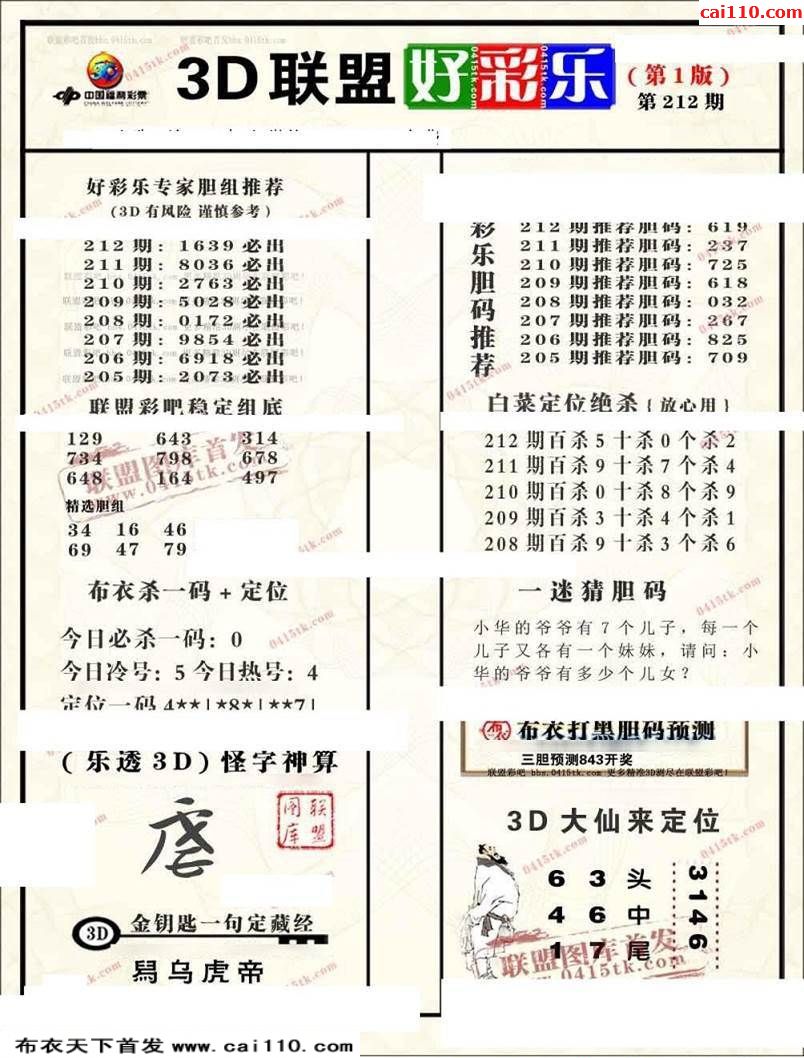 cai110.com
联盟彩吧首发bbs.0415tk.com
中国福利彩票
CHINA WELFARE LOTTERY
3D联盟好彩乐
(第1版)
第212期
好彩乐专家胆组推荐
(3D有风险 谨慎参考)
212期: 1639必出
211期: 8036必出
210期: 2763必出
209期: 5028必出
208期: 0172必出
207期: 9854必出
206期: 8618必出
205期: 2073必出
联盟彩吧稳定组底
129 643 314
734 798 678
648 164 497
精选胆组
34 16 46
69 47 79
布衣杀一码+定位
今日必杀一码: 0
今日冷号: 5 今日热号: 4
定位一码 4**|*8*|**7|
(乐透3D)怪字神算
联盟图库
3D 金钥匙一句定藏经
舄乌虎帝
彩乐胆码推荐
212期推荐胆码: 619
211期推荐胆码: 237
210期推荐胆码: 725
209期推荐胆码: 618
208期推荐胆码: 032
207期推荐胆码: 267
206期推荐胆码: 825
205期推荐胆码: 709
白菜定位绝杀{放心用}
212期百杀5十杀0个杀2
211期百杀9十杀7个杀4
210期百杀0十杀8个杀9
209期百杀3十杀4个杀1
208期百杀9十杀3个杀6
一迷猜胆码
小华的爷爷有7个儿子, 每一个
儿子又各有一个妹妹, 请问: 小
华的爷爷有多少个儿女?
布衣打黑胆码预测
三胆预测843开奖
联盟彩吧 bbs.0415tk.com 更多精准3D测尽在联盟彩吧!
3D大仙来定位
6 3 头
4 6 中
1 7 尾
3146
联盟图库首发
www.0415tk.com
布衣天下首发 www.cai110.com